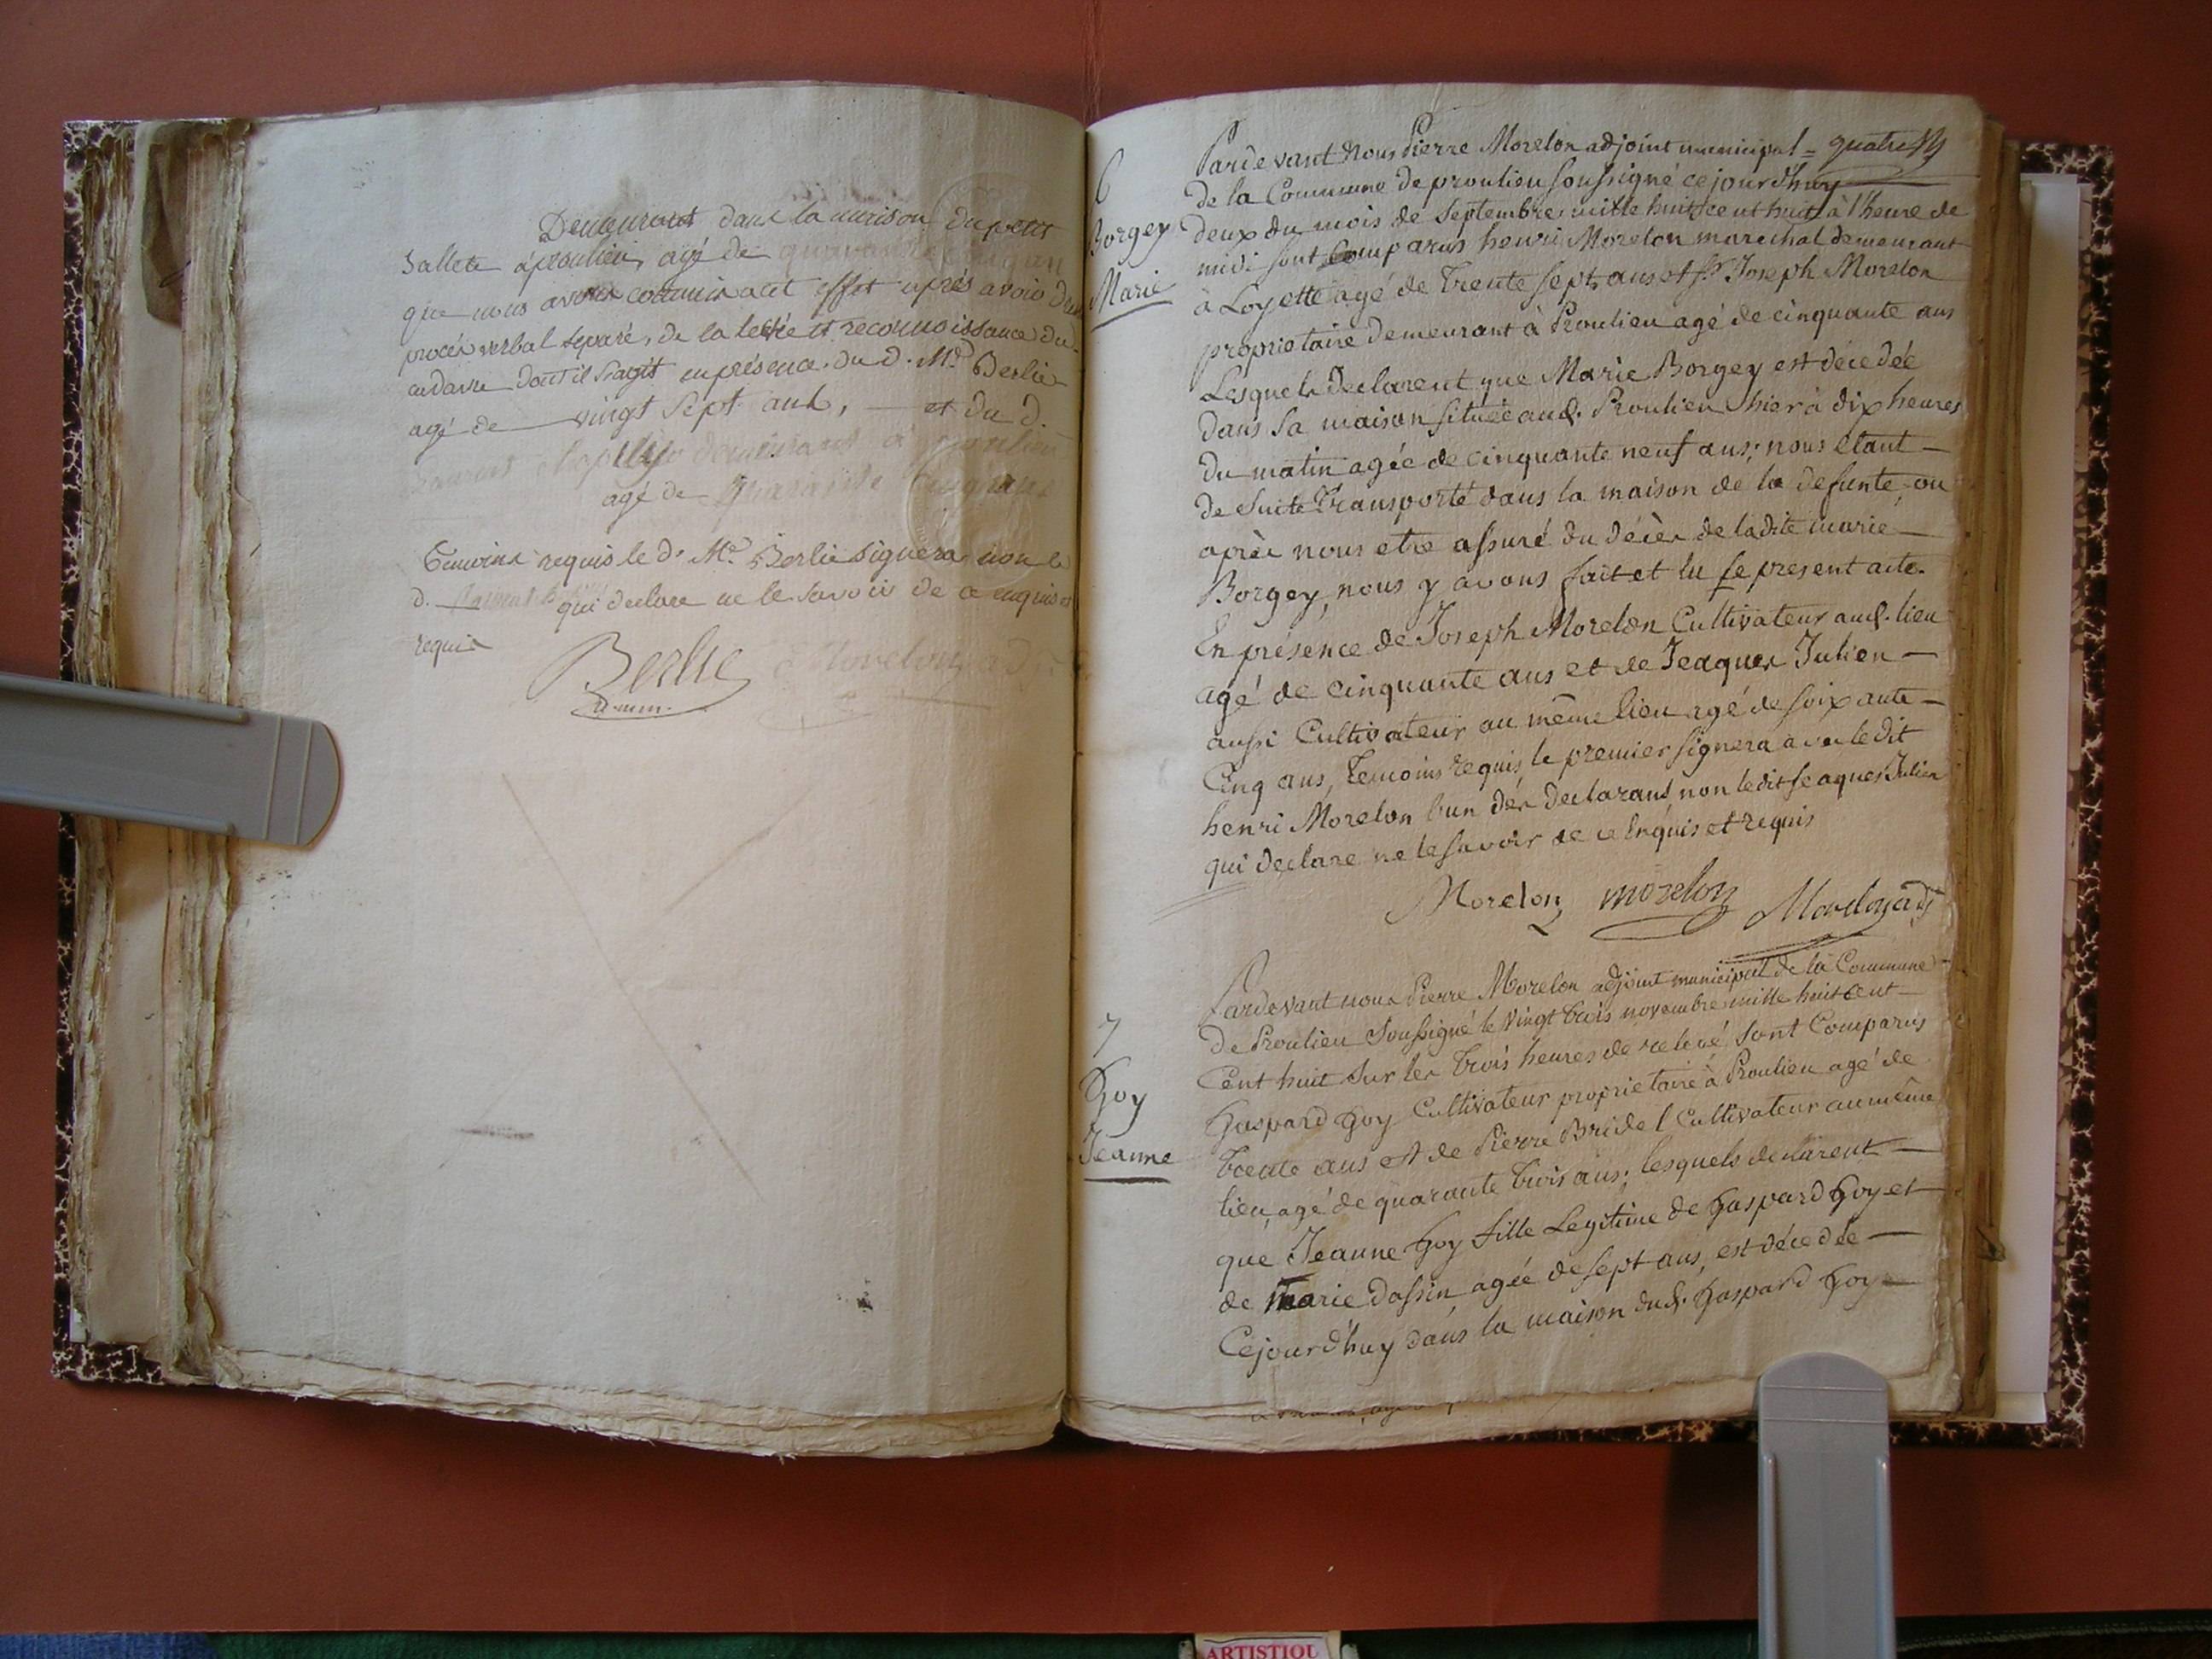 Demeurant dans la maison du petit
Sallete a proulieu, agé de quarante cinq an
que nous avons commis a cet effet après avoir
procès verbal separé, de la levée et reconnoissance du
cadavre dont il s'agit en présence du d. Mr. Berlie
agé de vingt sept ans, et du d.
demeurant à proulieu
agé de quarante cinq ans
temoins requis le d. Mr. Berlie signera non le
d. qui declare ne le savoir de ce enquis et
requis
Berlie Morelon adj
6
Borgey
Marie
quatre
Pardevant Nous Pierre Morelon adjoint municipal =
de la Commune de proulieu soussigné cejourd'huy
deux du mois de Septembre mille huit cent huit à l'heure de
midi sont comparus henri Morelon marechal demeurant
à Loyette agé de trente sept ans et Sr. Joseph Morelon
proprietaire demeurant à Proulieu agé de cinquante ans
Lesquels declarent que Marie Borgey est décedée
dans sa maison située aud. Proulieu hier à dix heures
du matin agée de cinquante neuf ans; nous etant —
de suite transporté dans la maison de la defunte, ou
après nous etre assuré du décès de ladite marie —
Borgey, nous y avons fait et lu le present acte.
En présence de Joseph Morelon Cultivateur aud. lieu
agé de cinquante ans et de Jeaques Julien —
aussi Cultivateur au même lieu agé de soixante —
Cinq ans, temoins requis, le premier signera avec ledit
henri Morelon l'un des declarans non ledit Jeaques Julien
qui declare ne le savoir de ce Enquis et requis
Morelon morelon Morelon adj
7
Goy
Jeanne
Pardevant nous Pierre Morelon adjoint municipal de la Commune
de Proulieu soussigné le vingt trois novembre mille huit cent —
Cent huit sur les trois heures de relevé sont Comparus
Gaspard Goy Cultivateur proprietaire à Proulieu agé de
trente ans et de Pierre Bridel Cultivateur au même
lieu, agé de quarante trois ans; lesquels declarent —
que Jeanne Goy fille Legitime de Gaspard Goy et
de Marie dassin, agée de sept ans, est décedée —
Cejourd'huy dans la maison dud. Gaspard Goy —
ARTISTIQU